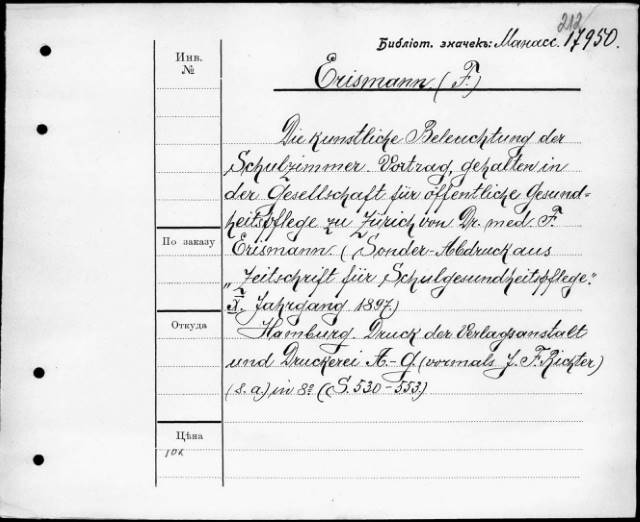 212
Библіот. значекъ: Манасс. 17950.
Инв.
№
Erismann (F.)
Die künstliche Beleuchtung der
Schulzimmer. Vortrag, gehalten in
der Gesellschaft für öffentliche Gesund-
heitspflege zu Zürich von Dr. med. F.
По заказу
Erismann. (Sonder-Abdruck aus
„Zeitschrift für Schulgesundheitspflege."
X. Jahrgang 1897.)
Откуда
Hamburg. Druck der Verlagsanstalt
und Druckerei A.-G. (vormals J. F. Richter)
(s. a.) in 8º (S. 530-553)
Цѣна
10к